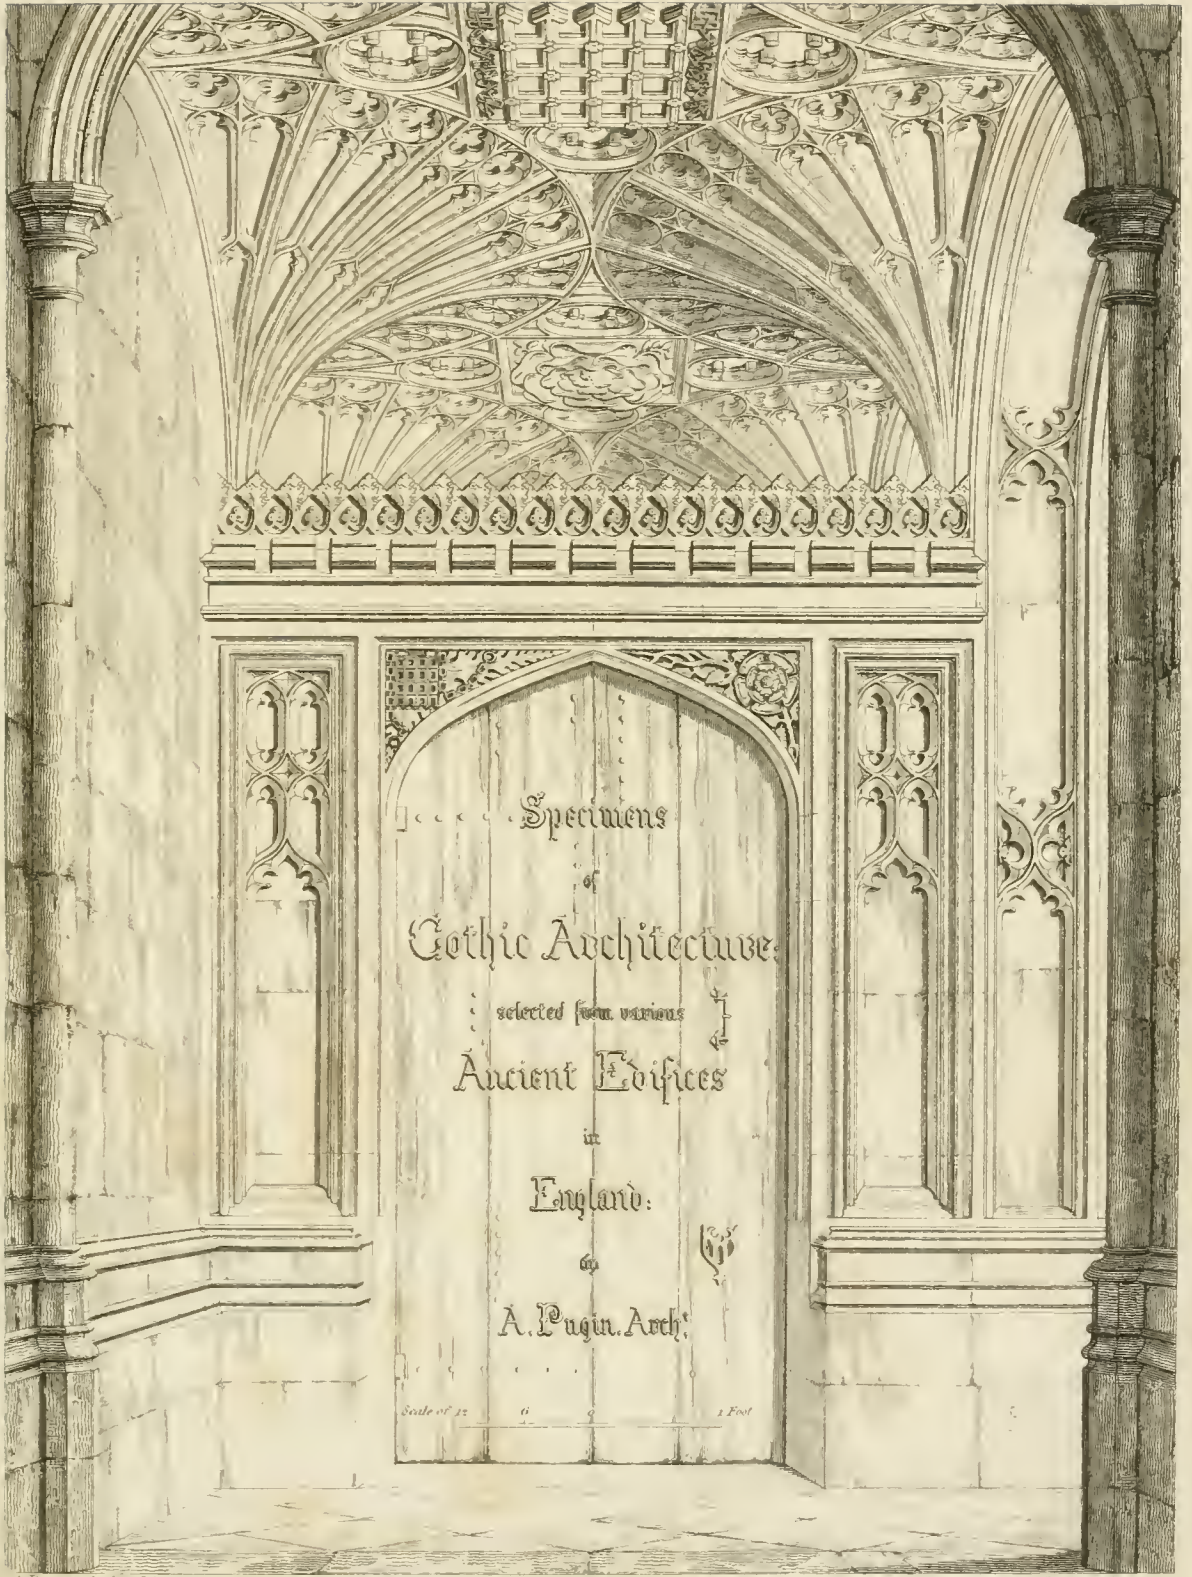 Specimens
of
Gothic Architecture:
selected from various
Ancient Edifices
in
England:
by
A. Pugin. Archt.
Scale of 12 6 0 1 Foot